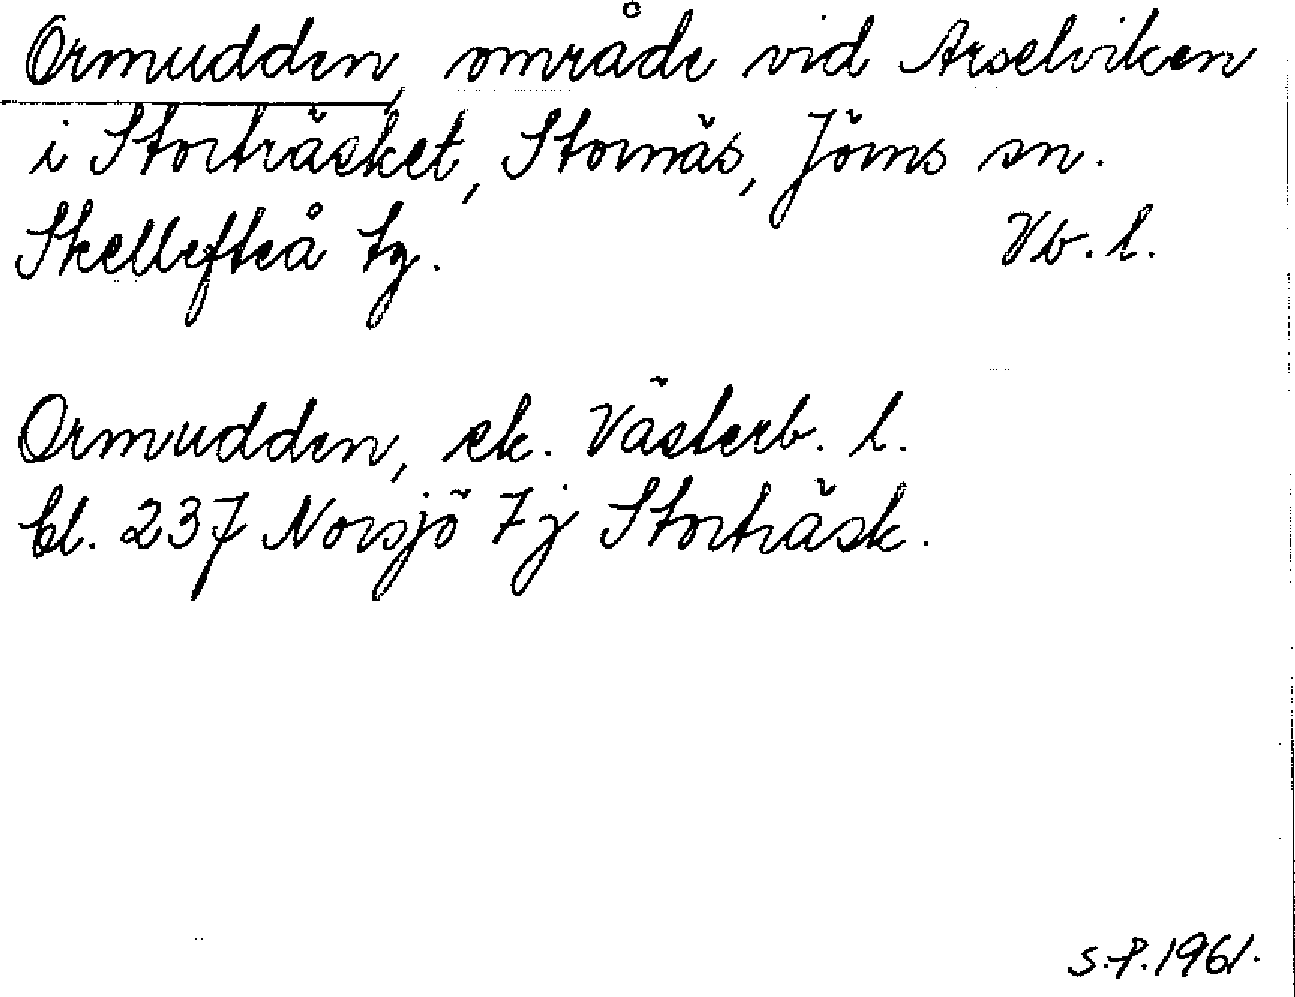 Ormudden, område vid Arselviken
i Storträsket, Stornäs, Jörns sn.
Skellefteå tg. Vb. l.
Ormudden, ek. Västerb. l.
bl. 237 Norsjö 7j Storträsk.
S.P. 1961.